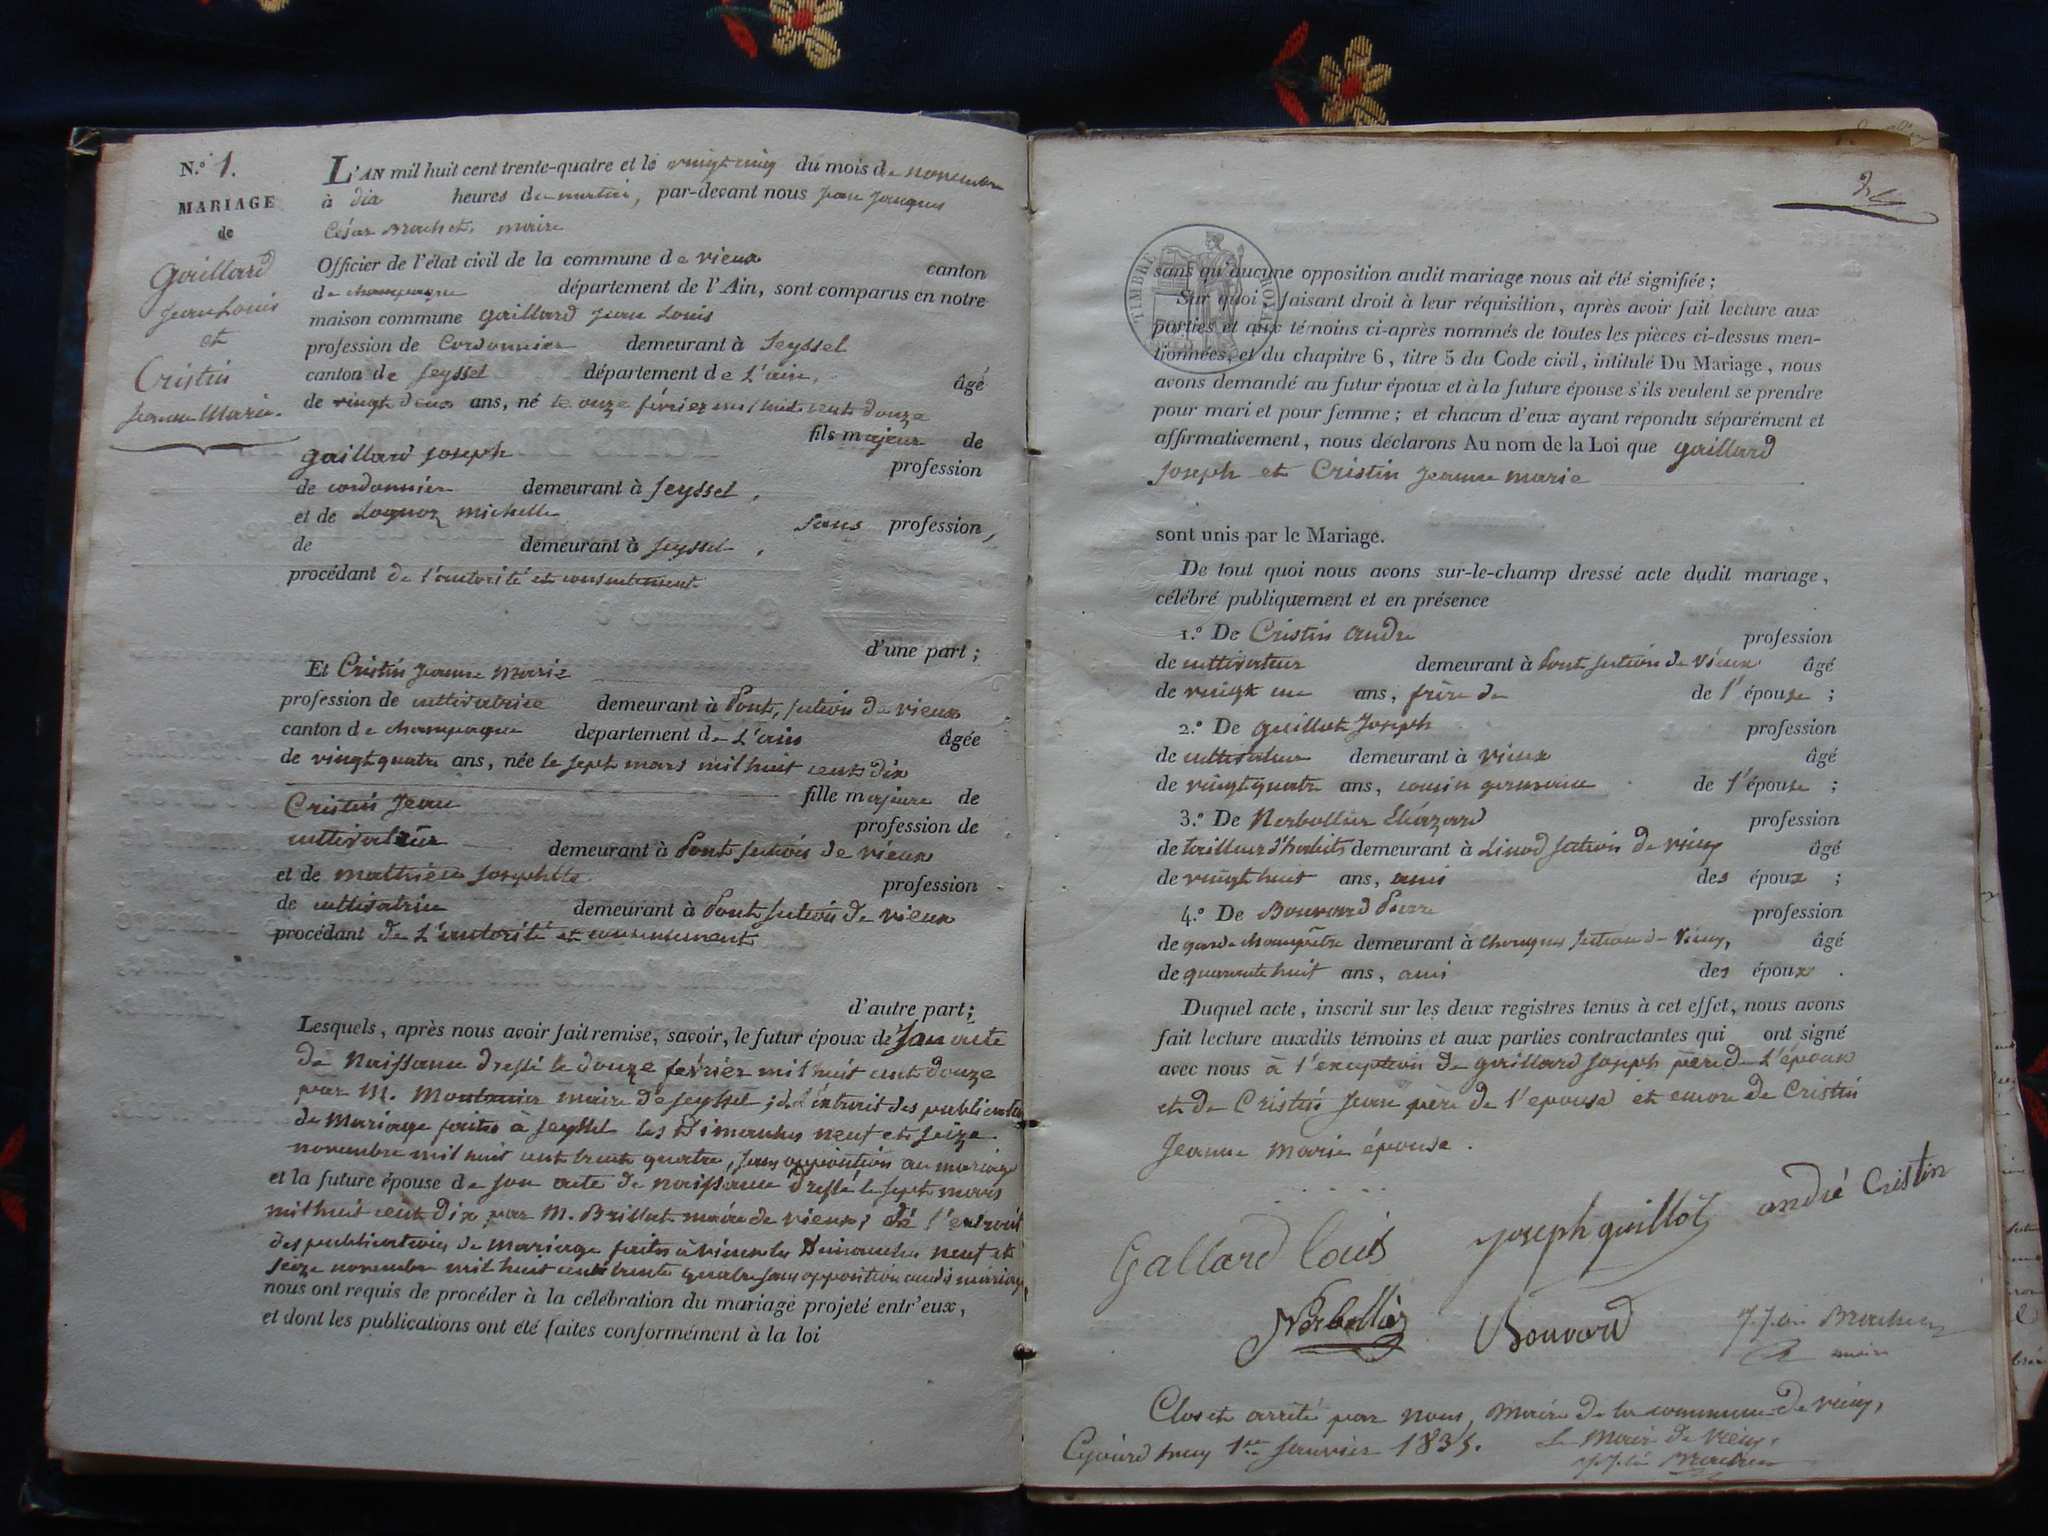 N.º 1.
MARIAGE
de
Gaillard
Jean Louis
et
Cristin
Jeanne Marie.
L'AN mil huit cent trente-quatre et le vingt cinq du mois de novembre
à dix heures du matin, par-devant nous Jean Jacques
César Brachet, maire
Officier de l'état civil de la commune de vieux canton
de champagne département de l'Ain, sont comparus en notre
maison commune gaillard Jean Louis
profession de Cordonnier demeurant à Seyssel
canton de Seyssel département de L'ain, âgé
de vingt deux ans, né le onze février mil huit cent douze
fils majeur de
gaillard Joseph profession
de cordonnier demeurant à Seyssel,
et de michelle Sans profession,
de demeurant à Seyssel,
procédant de l'autorité et consentement
d'une part;
Et Cristin Jeanne Marie
profession de cultivatrice demeurant à Pont, section de vieux
canton de champagne département de L'ain âgée
de vingt quatre ans, née le sept mars mil huit cent dix
fille majeure de
Cristin Jean profession de
cultivateur demeurant à Pont section de vieux
et de mathieu Josephte profession
de cultivatrice demeurant à Pont section de vieux
procédant de L'autorité et consentement
d'autre part;
Lesquels, après nous avoir fait remise, savoir, le futur époux de Son acte
de Naissance dressé le douze février mil huit cent douze
par M. Montanier maire de Seyssel; de l'extrait des publications
de Mariage faites à Seyssel les Dimanches neuf et Seize
novembre mil huit cent trente quatre, sans opposition au mariage
et la future épouse de son acte de naissance dressé le sept mars
mil huit cent dix par M. Brillat maire de vieux; de l'extrait
des publications de mariage faites à vieux les Dimanches neuf et
seize novembre mil huit cent trente quatre sans opposition audit mariage,
nous ont requis de procéder à la célébration du mariage projeté entr'eux,
et dont les publications ont été faites conformément à la loi
TIMBRE ROYAL
sans qu'aucune opposition audit mariage nous ait été signifiée;
Sur quoi, faisant droit à leur réquisition, après avoir fait lecture aux
parties et aux témoins ci-après nommés de toutes les pièces ci-dessus men-
tionnées, et du chapitre 6, titre 5 du Code civil, intitulé Du Mariage, nous
avons demandé au futur époux et à la future épouse s'ils veulent se prendre
pour mari et pour femme; et chacun d'eux ayant répondu séparément et
affirmativement, nous déclarons Au nom de la Loi que gaillard
Joseph et Cristin Jeanne marie
sont unis par le Mariage.
De tout quoi nous avons sur-le-champ dressé acte dudit mariage,
célébré publiquement et en présence
1.º De Cristin andré profession
de cultivateur demeurant à Pont section de vieux âgé
de vingt un ans, frère de de l'épouse;
2.º De guillot Joseph profession
de cultivateur demeurant à vieux âgé
de vingt quatre ans, cousin germain de l'épouse;
3.º De Nerbollier Eléazard profession
de tailleur d'habits demeurant à Linod section de vieux âgé
de vingt huit ans, ami des époux;
4.º De Bouvard Pierre profession
de garde champêtre demeurant à section de vieux, âgé
de quarante huit ans, ami des époux.
Duquel acte, inscrit sur les deux registres tenus à cet effet, nous avons
fait lecture auxdits témoins et aux parties contractantes qui ont signé
avec nous à l'exception de gaillard Joseph père de L'époux
et de Cristin Jean père de l'epouse et encore de Cristin
Jeanne marie épouse.
Gallard Louis Joseph guillot andré Cristin
Nerbollier Bouvard J. J. Brachet
maire
Clos et arrêté par nous, Maire de la commune de vieux,
Cejourd'huy 1er Janvier 1835. Le Maire de vieux,
J. J. Brachet